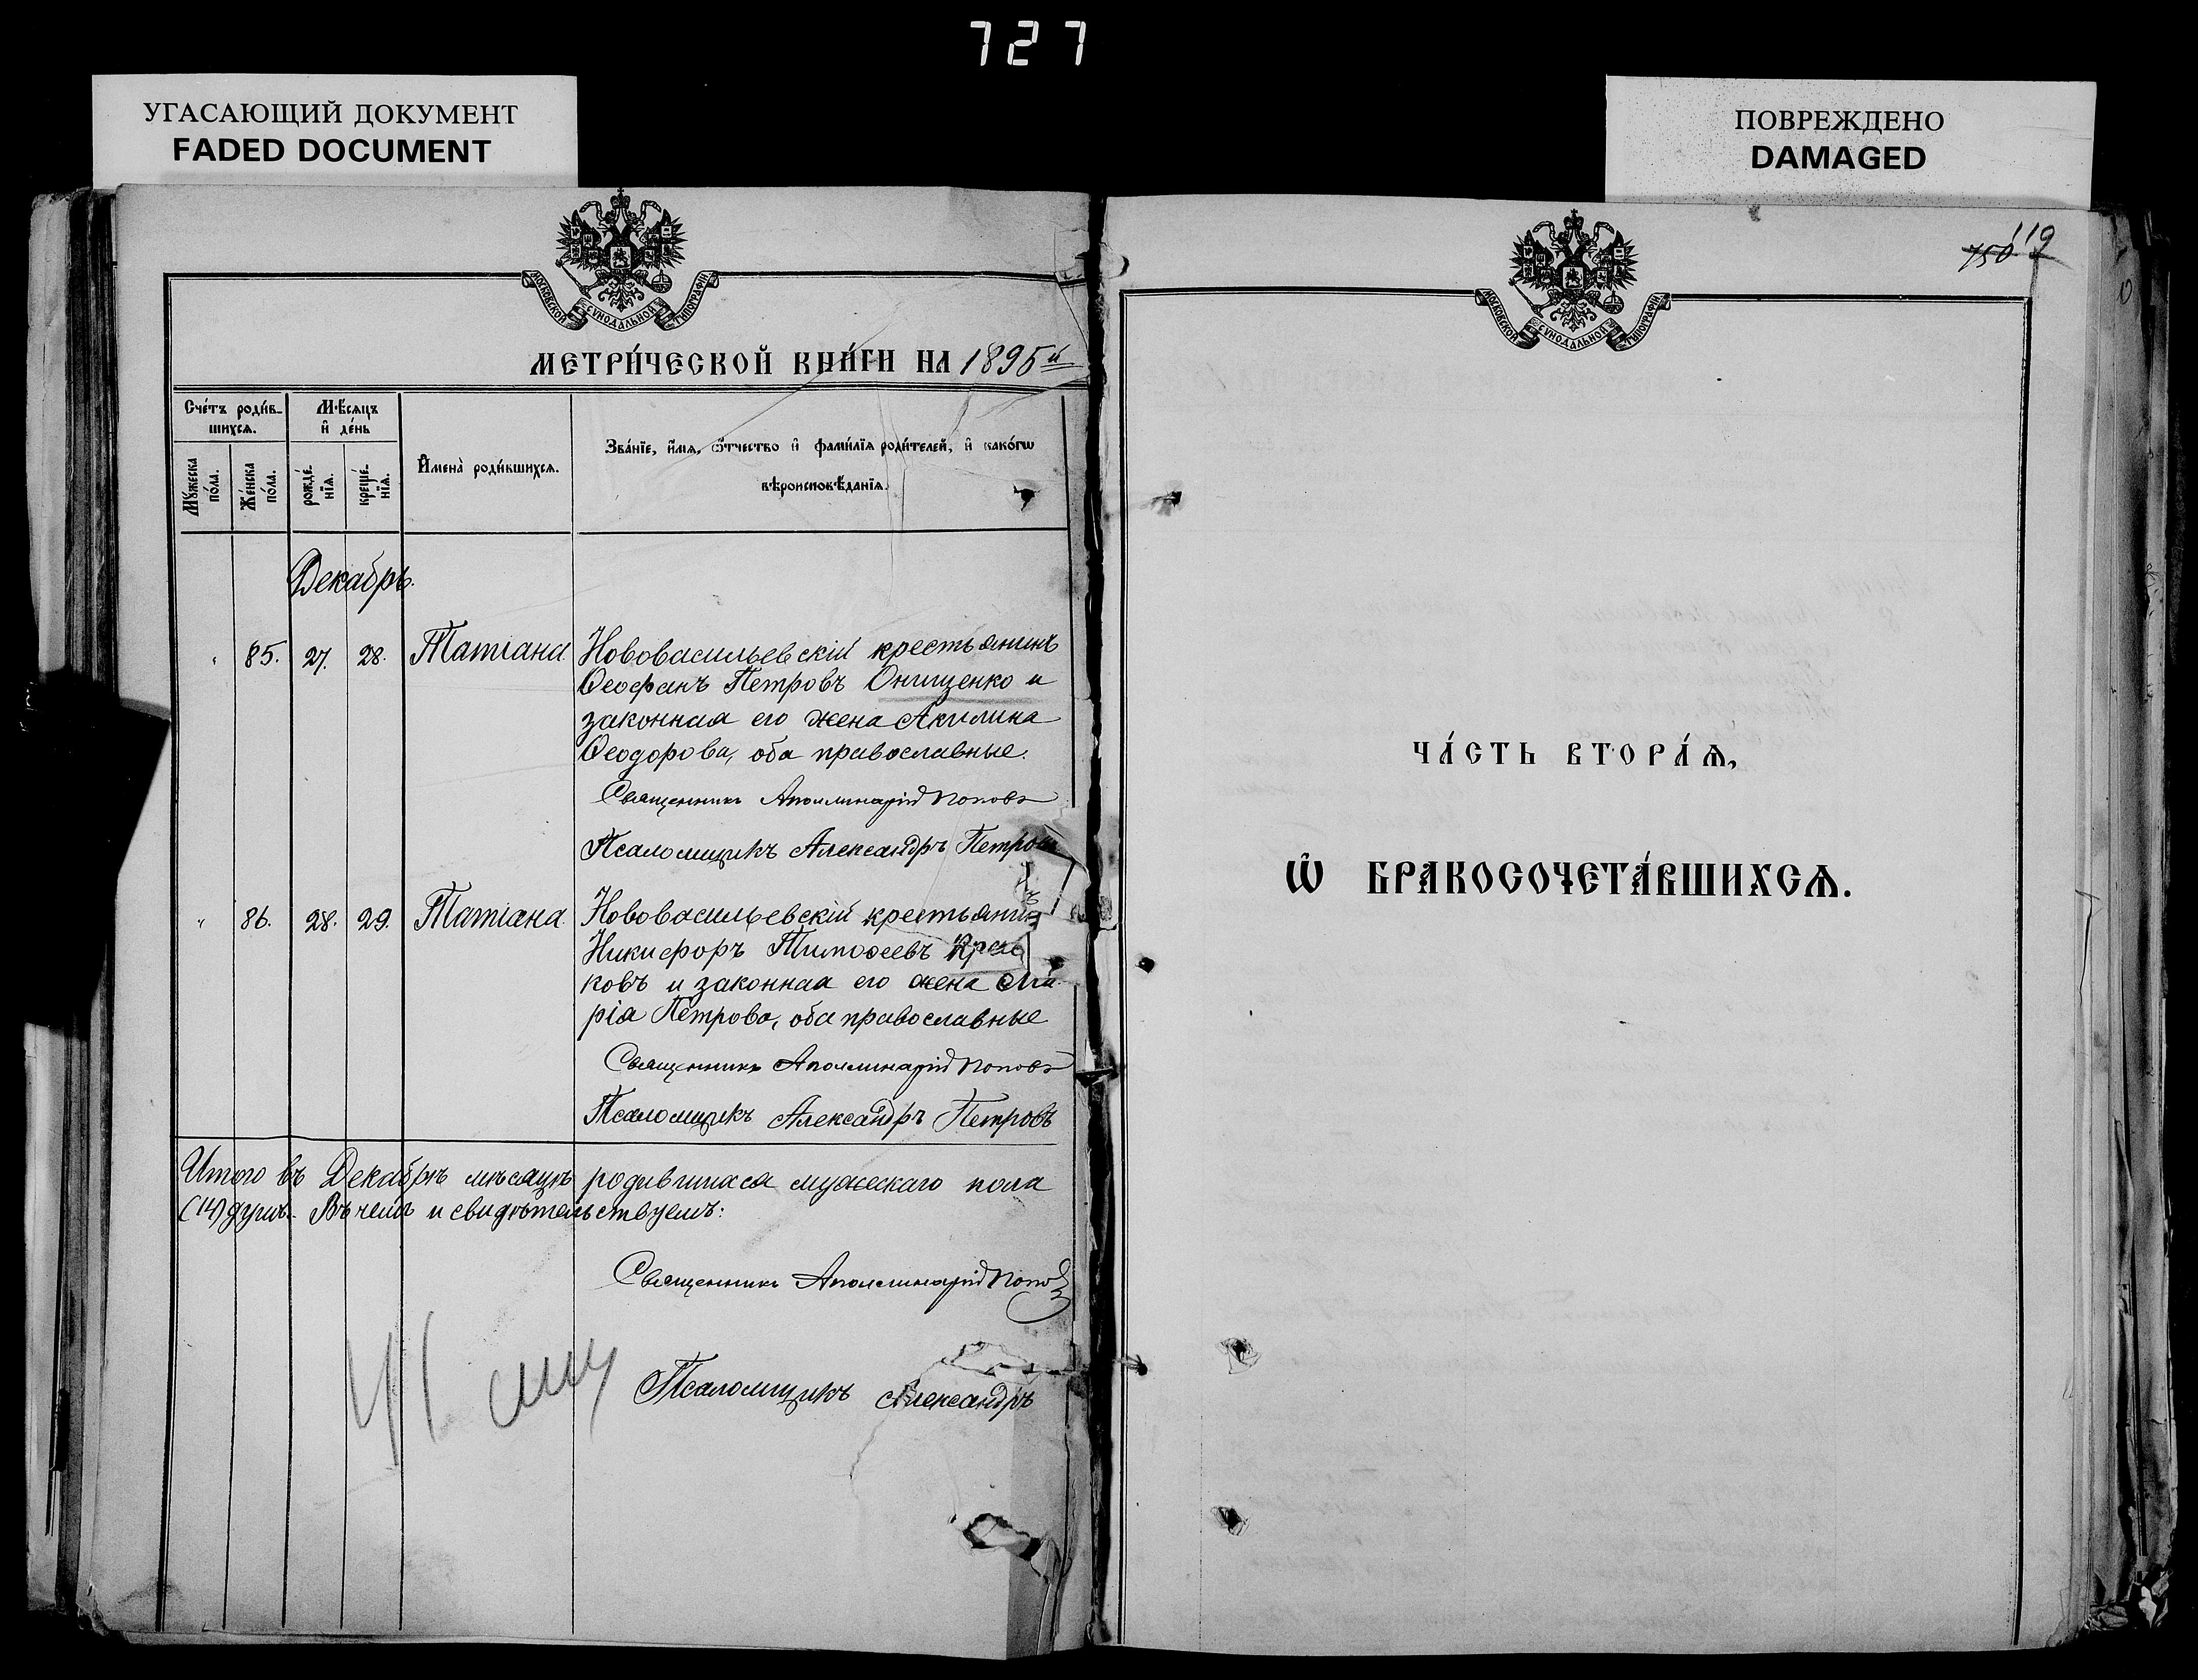 727
УГАСАЮЩИЙ ДОКУМЕНТ
FADED DOCUMENT
ПОВРЕЖДЕНО
DAMAGED
МОСКОВСКОЙ СѴНОДАЛЬНОЙ ТИПОГРАФІИ
МЕТРИ́ЧЕСКОЙ КНИ́ГИ НА 1895й
Сче́тъ роди́в-
шихсѧ.
Мѣ́сѧцъ
и҆ де́нь
Мꙋ́жеска
по́ла.
Же́нска
по́ла.
рожде́-
нїѧ.
креще́-
нїѧ.
И҆мена̀ роди́вшихсѧ.
Зва́нїе, и҆́мѧ, ѻ҆́тчество и҆ фами́лїѧ роди́телей, и҆ како́гѡ
вѣроисповѣ́данїѧ.
Декабрь.
" 85. 27. 28. Татіана. Нововасильевскій крестьянинъ
Ѳеофанъ Петровъ Онищенко и
законная его жена Акилина
Ѳеодорова, оба православные.
Священникъ Аполлинарій Поповъ
Псаломщикъ Александръ Петровъ
" 86. 28. 29. Татіана. Нововасильевскій крестьянинъ
Никифоръ Тимоѳеевъ
ковъ и законная его жена Ма-
рія Петрова, оба православные
Священникъ Аполлинарій Поповъ
Псаломщикъ Александръ Петровъ
Итого въ Декабрѣ мѣсяцѣ родившихся мужескаго пола
(14) душъ. Въ чемъ и свидѣтельствуемъ:
Священникъ Аполлинарій Поповъ
Псаломщикъ Александръ
119
750
МОСКОВСКОЙ СѴНОДАЛЬНОЙ ТИПОГРАФІИ
ЧА́СТЬ ВТОРА́Ѧ,
Ѡ҆ БРАКОСОЧЕТА́ВШИХСѦ.